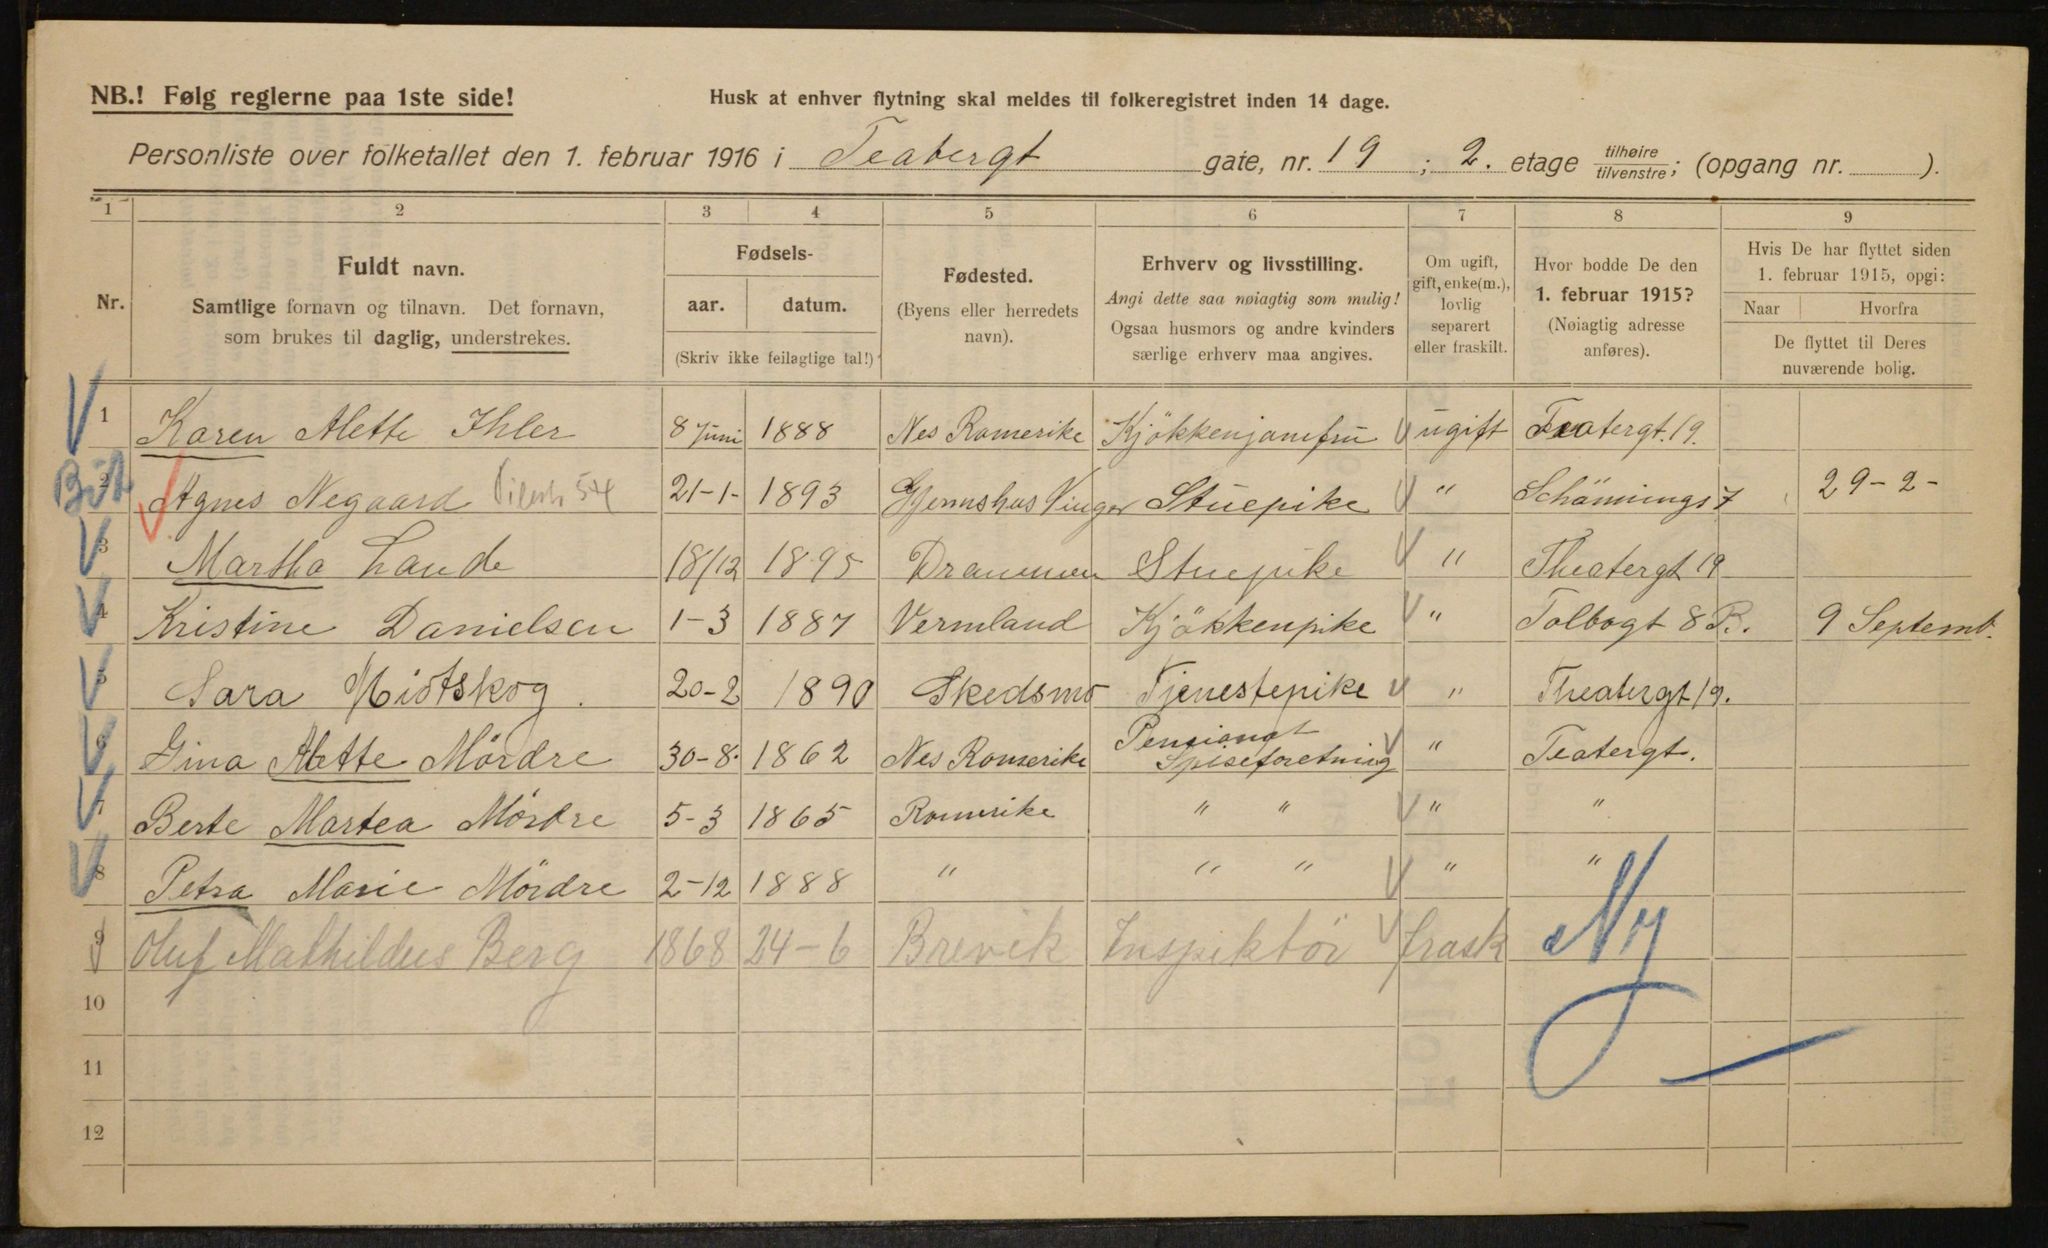 NB.! Følg reglerne paa 1ste side! Husk at enhver flytning skal meldes til folkeregistret inden 14 dage.
Personliste over folketallet den 1. februar 1916 i Teatergt gate, nr. 19; 2. etage tilhøire/tilvenstre; (opgang nr. ).
1 2 3 4 5 6 7 8 9
Nr.
Fuldt navn.
Samtlige fornavn og tilnavn. Det fornavn,
som brukes til daglig, understrekes.
Fødsels-
aar. datum.
(Skriv ikke feilagtige tal!)
Fødested.
(Byens eller herredets
navn).
Erhverv og livsstilling.
Angi dette saa nøiagtig som mulig!
Ogsaa husmors og andre kvinders
særlige erhverv maa angives.
Om ugift,
gift, enke(m.),
lovlig
separert
eller fraskilt.
Hvor bodde De den
1. februar 1915?
(Nøiagtig adresse
anføres).
Hvis De har flyttet siden
1. februar 1915, opgi:
Naar Hvorfra
De flyttet til Deres
nuværende bolig.
1 Karen Alette Ihler 8 Juni 1888 Nes Romerike Kjökkenjomfru ugift Teatergt. 19.
2 Agnes Negaard 21-1- 1893 Vinger Stuepike " Schännings 7 29-2-
3 Martha Lande 18/12 1895 Drammen Stuepike " Theatergt 19
4 Kristine Danielsen 1-3 1887 Vermland Kjökkenpike " Tolbogt 8 B. 9 Septemb.
5 Sara Midtskog. 20-2 1890 Skedsmo Tjenestepike " Theatergt 19.
6 Gina Alette Mördre 30-8. 1862 Nes Romerike Pensionat Spiseforetning " Teatergt.
7 Berte Martea Mördre 5-3 1865 Romerike " " " "
8 Petra Marie Mördre 2-12 1888 " " " " "
9 Oluf Mathildus Berg 1868 24-6 Brevik Inspektör frask Ny
10
11
12